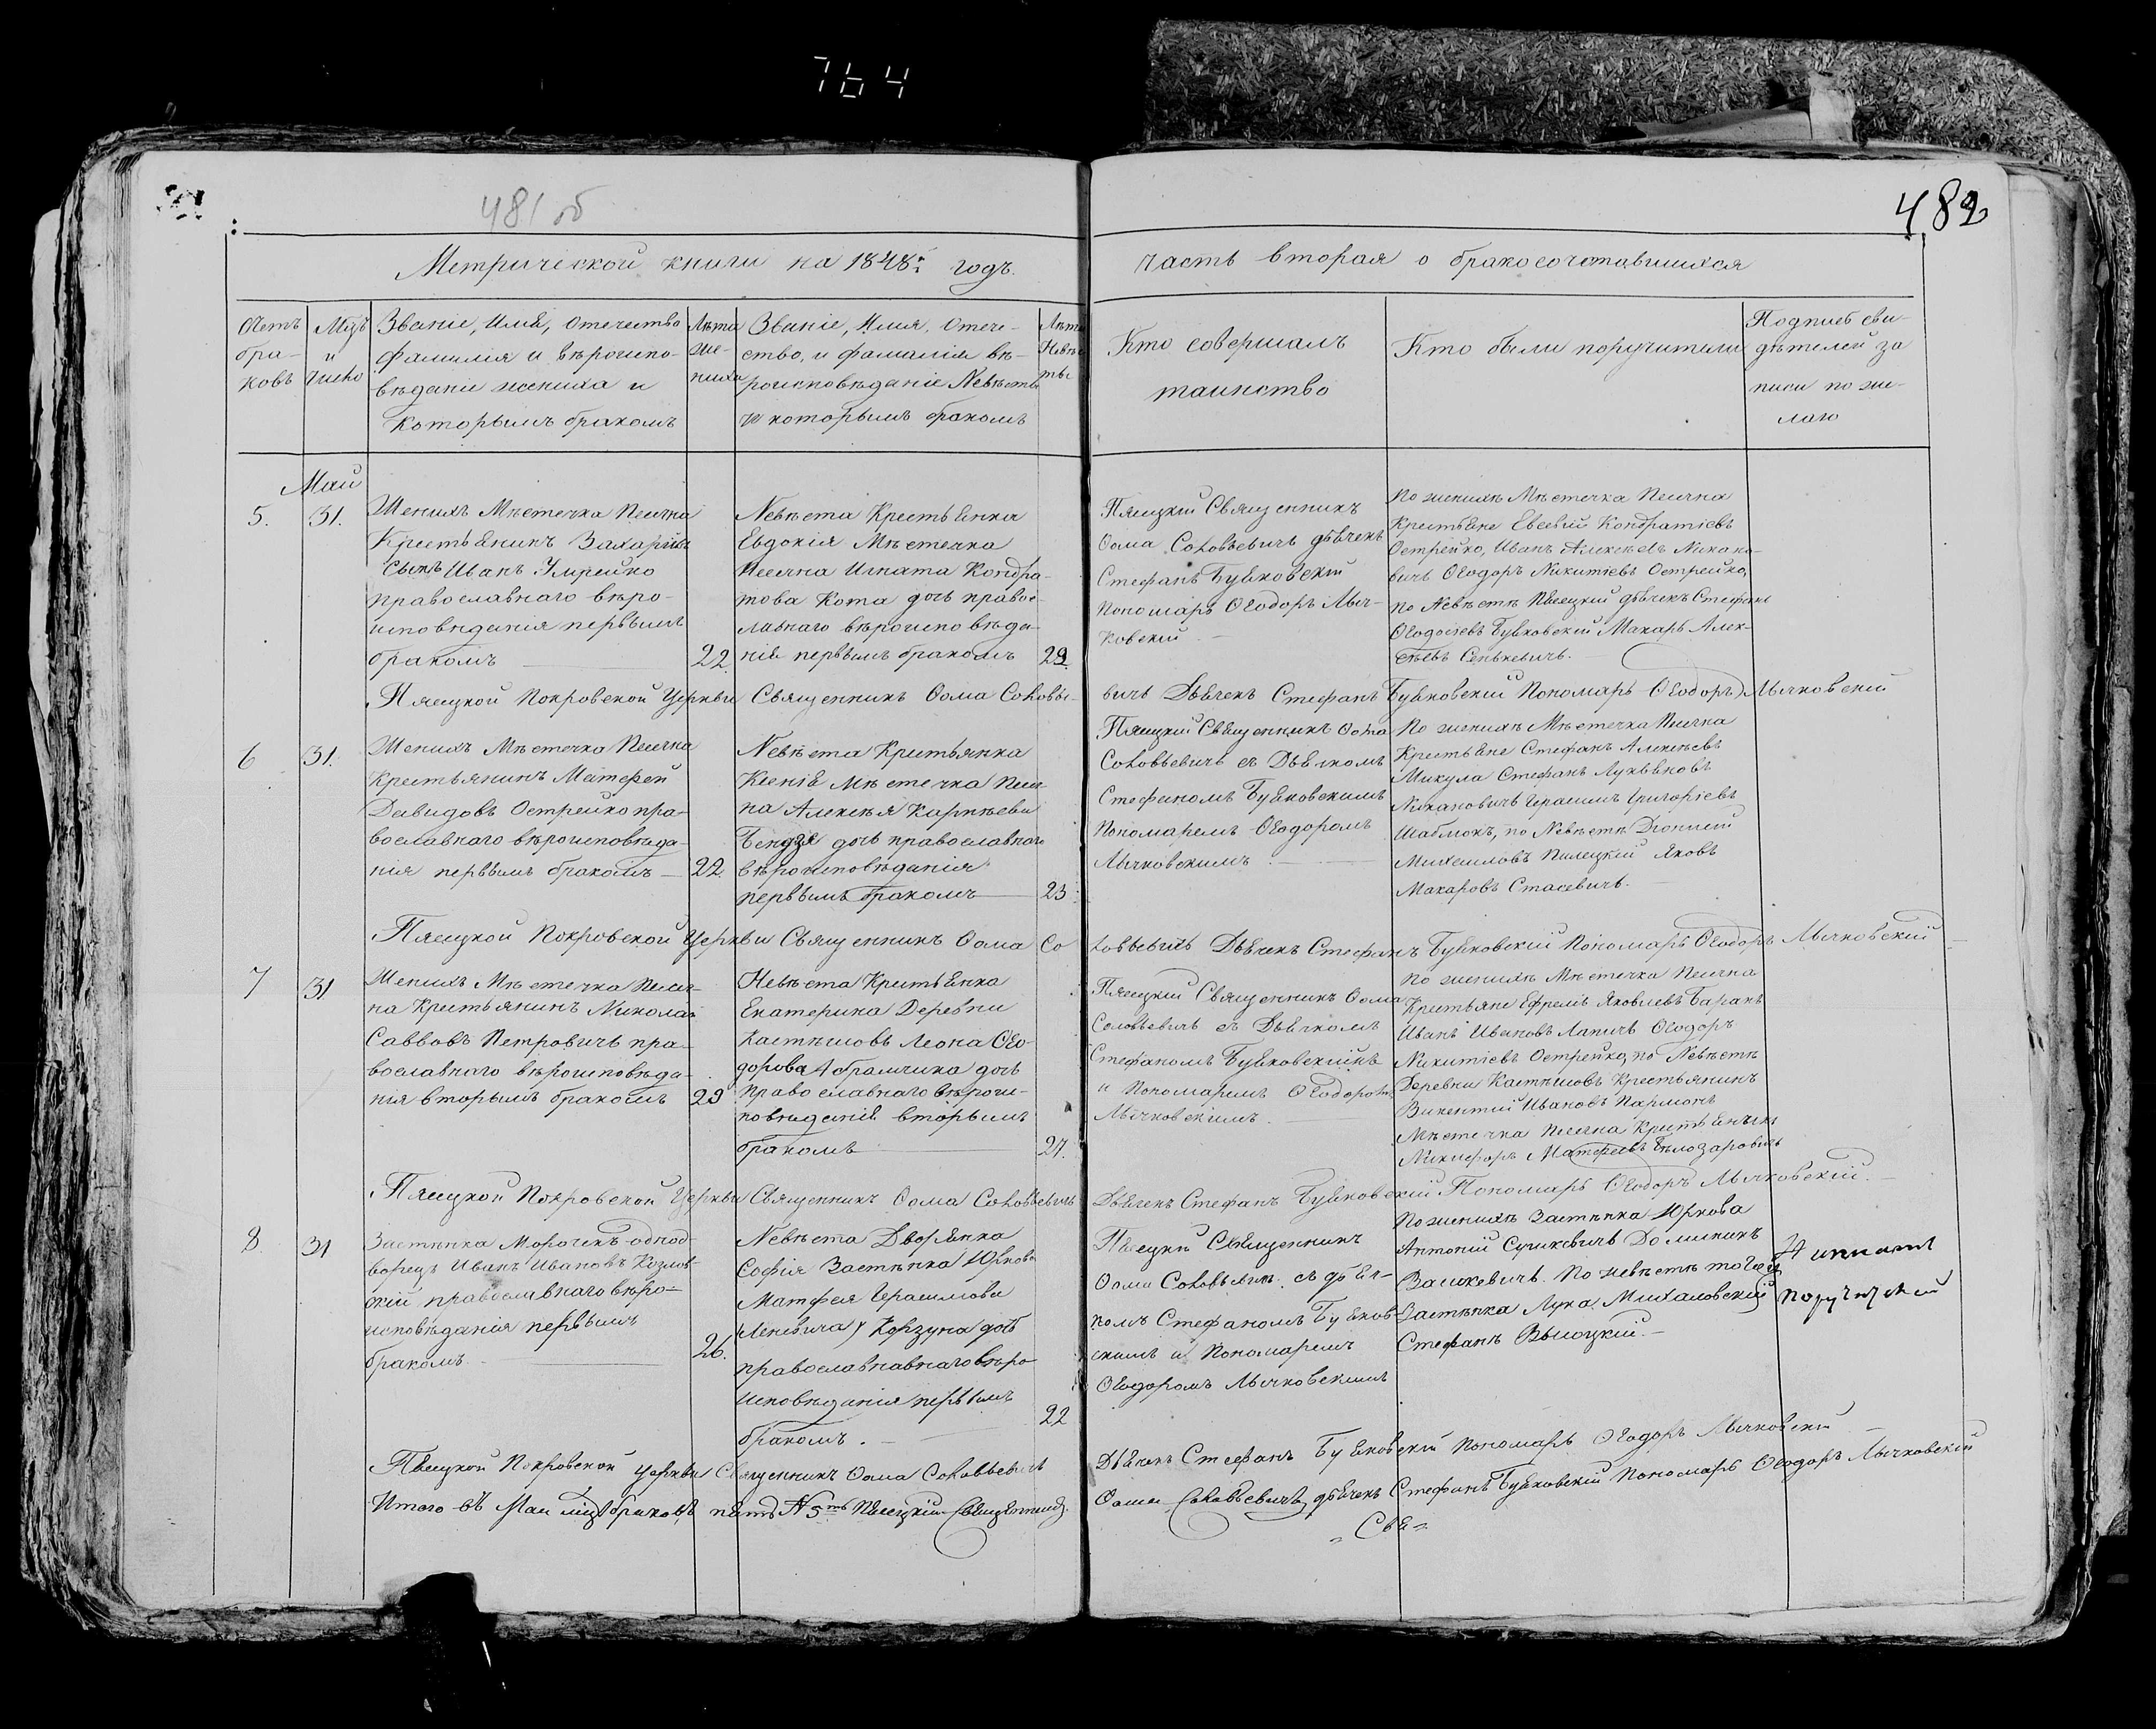 764
481 об
482
Метрической книги на 1848й годъ.
часть вторая о бракосочетавшихся
Счетъ браковъ
Мцъ и число
Званіе, Имя, Отечество
фамилія и вѣроиспо-
вѣданіе жениха и
которымъ бракомъ
Лѣта же-
ниха
Званіе, Имя, Отече-
ство, и фамилія вѣ-
роисповѣданіе Невѣсты
и которымъ бракомъ
Лѣта
Невѣс
ты
Кто совершалъ
таинство
Кто были поручители
Подпись сви-
дѣтелей за
писи по же-
лаю
Май
5.
31.
Женихъ Мѣстечка Песечна
Крестьянинъ Захаріинъ
сынъ Иванъ
православнаго вѣро-
исповѣданія первымъ
бракомъ
22
Невѣста Крестьянка
Евдокія Мѣстечка
Песечна Игната Кондра-
това Кота дочь правос-
лавнаго вѣроисповѣда-
нія первымъ бракомъ
Пясецкій Священникъ
Ѳома Соловьевичъ дьячекъ
Стефанъ Буяковскій
Пономарь Ѳеодоръ Мыч-
ковскій
по женихѣ Мѣстечка Песечна
Крестьяне Евсевій Кондратіевъ
Острейко, Иванъ Алексѣевъ Никано-
вичъ Ѳеодоръ Никитіевъ Острейко,
по Невѣстѣ Пясецкій дьячекъ Стефанъ
Ѳеодосіевъ Буяковскій Макаръ Алек-
сѣевъ Сенкевичъ.
Пясецкой Покровской Церкви Священникъ Ѳома Соловье-
вичъ Дьячекъ Стефанъ Буяковскій Пономарь Ѳеодоръ Мычковскій
6
31.
Женихъ Мѣстечка Песечна
Крестьянинъ Матфей
Давидовъ Острейко пра-
вославнаго вѣроисповѣда-
нія первымъ бракомъ
22.
Невѣста Крестьянка
Ксенія Мѣстечка Песеч-
на Алексѣя Карпѣева
Бендзя дочь православнаго
вѣроисповѣданія
первымъ бракомъ
23
Пясецкій Священникъ Ѳома
Соловьевичъ съ Дьячкомъ
Стефаномъ Буяковскимъ
Пономаремъ Ѳеодоромъ
Мычковскимъ
По женихѣ Мѣстечка Песечна
Крестьяне Стефанъ Алексѣевъ
Микула Стефанъ Лукьяновъ
Никановичъ Герасимъ Григоріевъ
по Невѣстѣ Діонисій
Михаиловъ Пилецкій Яковъ
Макаровъ Стасевичъ.
Пясецкой Покровской Церкви Священникъ Ѳома Со
ловьевичъ Дьячекъ Стефанъ Буяковскій Пономарь Ѳеодоръ Мычковскій
7
31
Женихъ Мѣстечка Песеч-
на Крестьянинъ Николай
Саввовъ Петровичъ пра-
вославнаго вѣроисповѣда-
нія вторымъ бракомъ
29
Невѣста Крестьянка
Екатерина Деревни
Кастѣшовъ Леона Ѳео-
дорова Абрамчика дочь
православнаго вѣрои-
повѣданія вторымъ
бракомъ
27.
Пясецкій Священникъ Ѳома
Соловьевичъ съ Дьячкомъ
Стефаномъ Буяковскимъ
и Пономаремъ Ѳеодоромъ
Мычковскимъ.
По женихѣ Мѣстечка Песечна
Крестьяне Ефремъ Яковлевъ Баранъ
Иванъ Ивановъ Лапичъ Ѳеодоръ
Никитіевъ Острейко, по Невѣстѣ
Деревни Кастѣшовъ Крестьянинъ
Викентій Ивановъ Пармонъ
Мѣстечка Песечна Крестьянинъ
Никифоръ Матфеевъ Бѣлозаровичъ
Пясецкой Покровской Церкви Священникъ Ѳома Соловьевичъ
Дьячекъ Стефанъ Буяковскій Пономарь Ѳеодоръ Мычковскій.
8.
31
Застѣнка Морочекъ однод-
ворецъ Иванъ Ивановъ Козлов-
скій православнаго вѣро-
исповѣданія первымъ
бракомъ.
26.
Невѣста Дворянка
Софія Застѣнка Юркова
Матфея Герасимова
Корзуна дочь
православнавнаго вѣро
исповѣданія первымъ
бракомъ.
22
Пясецкій Священникъ
Ѳома Соловьевичъ съ дьяч-
комъ Стефаномъ Буяков-
скимъ и Пономаремъ
Ѳеодоромъ Мычковскимъ
По женихѣ Застѣнка Юркова
Антоній Сушкевичъ Доминикъ
Вашкевичъ. По невѣстѣ тогожъ
Застѣнка Лука Михаловскій
Стефанъ Высоцкій.
Пясецкой Покровской Церкви Священникъ Ѳома Соловьевичъ
Дьячекъ Стефанъ Буяковскій Пономарь Ѳеодоръ Мычковскій
Итого въ Маи мцѣ браковъ пять № 5ть Пясецкій Священникъ
Ѳома Соловьевичъ дьячекъ Стефанъ Буяковскій Пономарь Ѳеодоръ Мычковскій